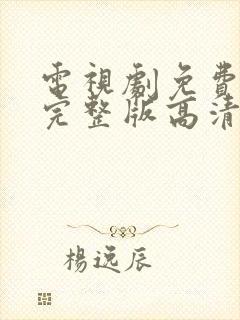 電視劇免費
完整版高清
楊逸辰